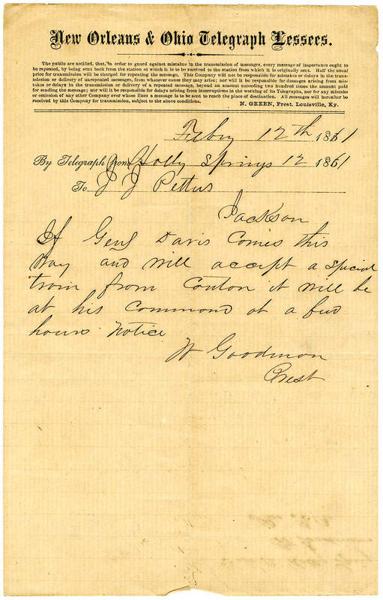 New Orleans & Ohio Telegraph Lessees.
The public are notified, that, in order to guard against mistakes in the transmission of messages, every message of importance ought to
be repeated, by being sent back from the station at which it is to be received to the station from which it is originally sent. Half the usual
price for transmission will be charged for repeating the message. This Company will not be responsible for mistakes or delays in the trans-
mission or delivery of unrepeated messages, from whatever cause they may arise; nor will it be responsible for damages arising from mis-
takes or delays in the transmission or delivery of a repeated message, beyond an amount exceeding two hundred times the amount paid
for sending the message; nor will it be responsible for delays arising from interruptions in the working of its Telegraphs, nor for any mistake
or omission of any other Company over whose lines a message is to be sent to reach the place of destination. All messages will hereafter be
received by this Company for transmission, subject to the above conditions.
N. GREEN, Prest. Louisville, Ky.
Feby 12th 1861
By Telegraph from Holly Springs 12 1861
To J J Pettus
Jackson
If Genl Davis Comes this
Way and will accept a Special
train from Canton it will be
at his Command at a few
hours Notice
W Goodman
Prest